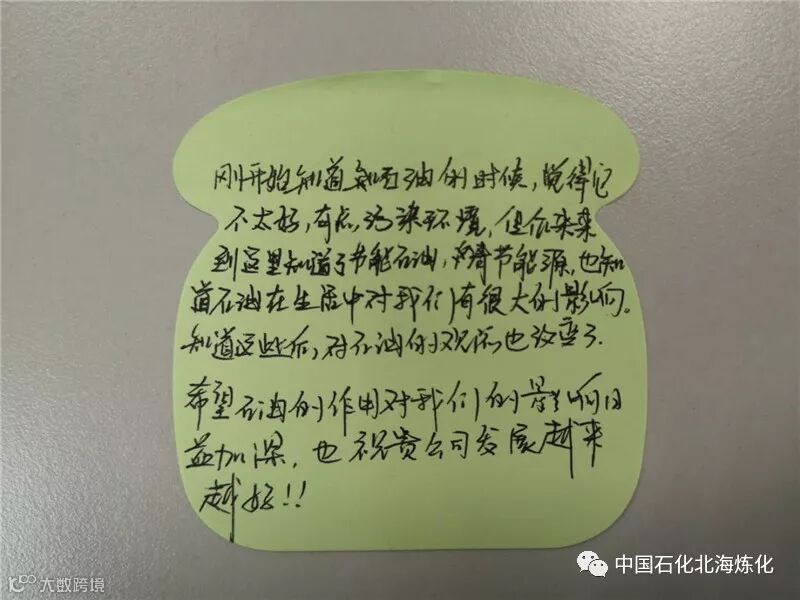 刚开始知道石油的时候,觉得它
不太好,有点污染环境,但你
到这里知道了节能石油,节能源,也知
道石油在生活中对我们有很大的影响。
知道这些后,对石油的观点也改变了.
希望石油的作用对我们的影响日
益加深,也祝贵公司发展越来
越好!!
中国石化北海炼化
10100 大数跨境